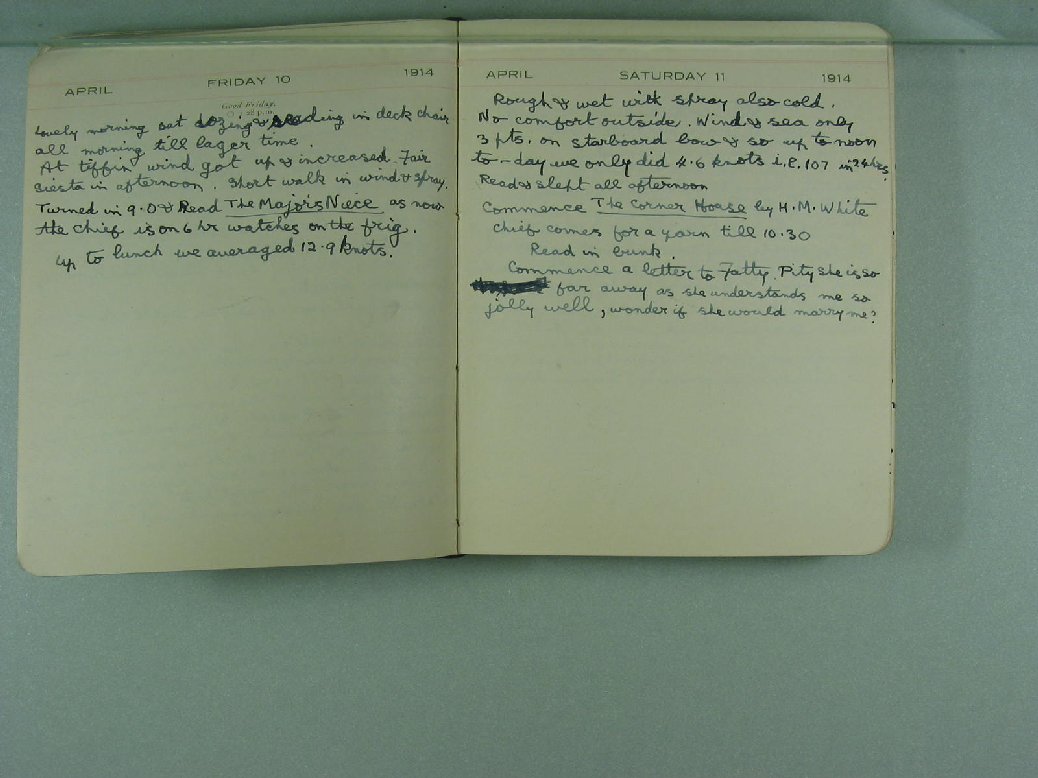 APRIL FRIDAY 10 1914
Good Friday.
Lovely morning sat dozing & reading in deck chair
all morning till lager time.
At tiffin wind got up & increased. Fair
siesta in afternoon. Short walk in wind & spray.
Turned in 9.0 & Read The Major's Niece as now
the chief is on 6 hr watches on the frig.
Up to lunch we averaged 12.9 knots.
APRIL SATURDAY 11 1914
Rough & wet with spray also cold.
No comfort outside. Wind & sea only
3 pts. on starboard bow & so up to noon
to-day we only did 4.6 knots i.e. 107 in 24 hrs.
Read & slept all afternoon
Commence The Corner House by H. M. White
Chief comes for a yarn till 10.30
Read in bunk.
Commence a letter to Fatty. Pity she is so
far away as she understands me so
jolly well, wonder if she would marry me?